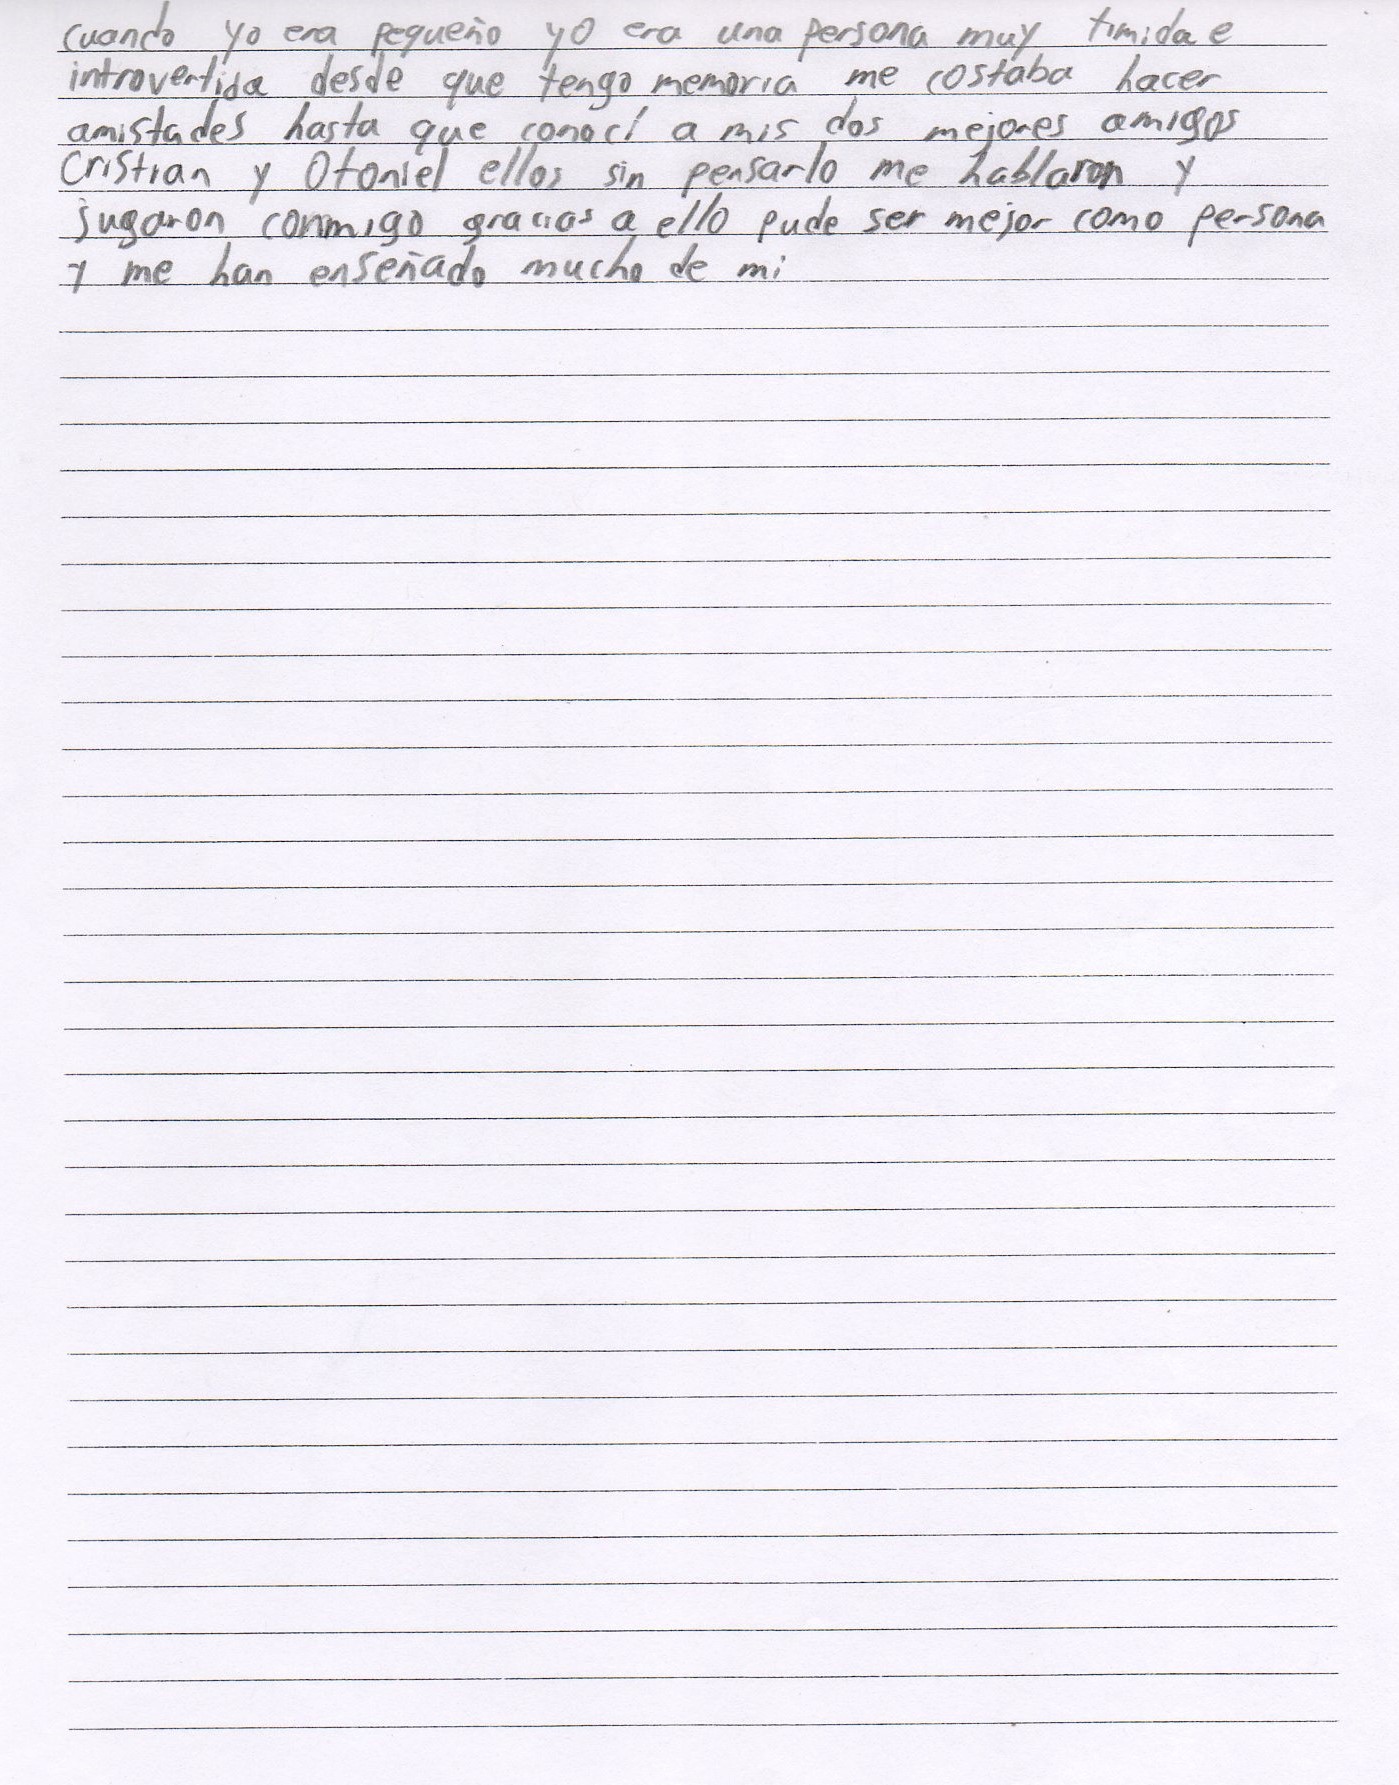 cuando yo era pequeño yo era una persona muy timida e
introvertida desde que tengo memoria me costaba hacer
amistades hasta que conocí a mis dos mejores amigos
Cristian y Otoniel ellos sin pensarlo me hablaron y
jugaron conmigo gracias a ello pude ser mejor como persona
y me han enseñado mucho de mi